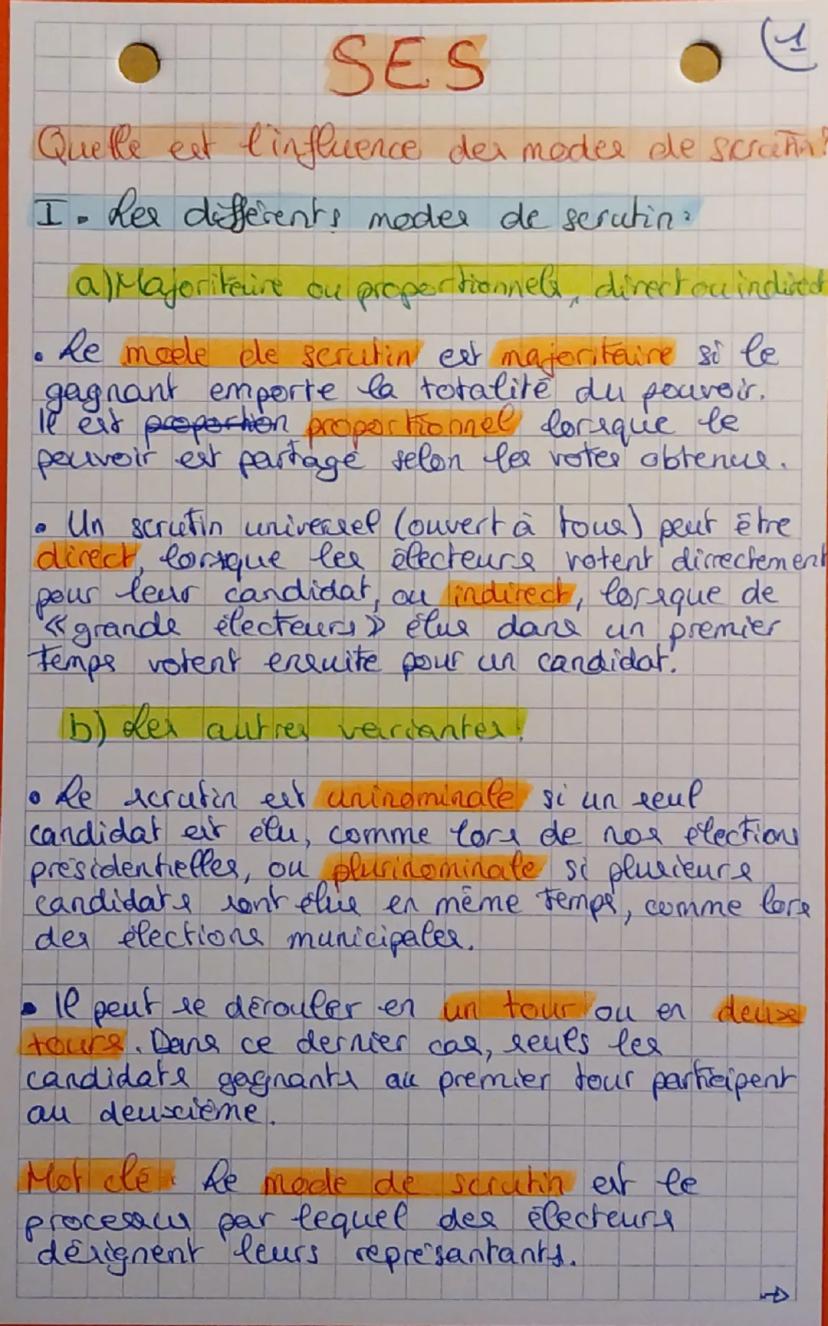 1
SES
Quelle est l'influence des modes de scrutin?
I. Les différents modes de scrutin:
a) Majoritaire ou proportionnels, direct ou indirect
• Le mode de scrutin est majoritaire si le
gagnant emporte la totalité du pouvoir.
Il est proportion proportionnel lorsque le
pouvoir est partagé selon les votes obtenus.
• Un scrutin universel (ouvert à tous) peut être
direct, lorsque les électeurs votent dirrectement
pour leur candidat, ou indirect, lorsque de
«grands électeurs» élus dans un premier
temps votent ensuite pour un candidat.
b) Les autres variantes:
• Le scrutin est uninominale si un seul
candidat est élu, comme lors de nos élections
présidentielles, ou plurinominale si plusieurs
candidats sont élus en même temps, comme lors
des élections municipales.
• Il peut se dérouler en un tour ou en deux
tours. Dans ce dernier cas, seuls les
candidats gagnants au premier tour participent
au deuxième.
Mot clé: Le mode de scrutin est le
processus par lequel des électeurs
désignent leurs représantants.
→